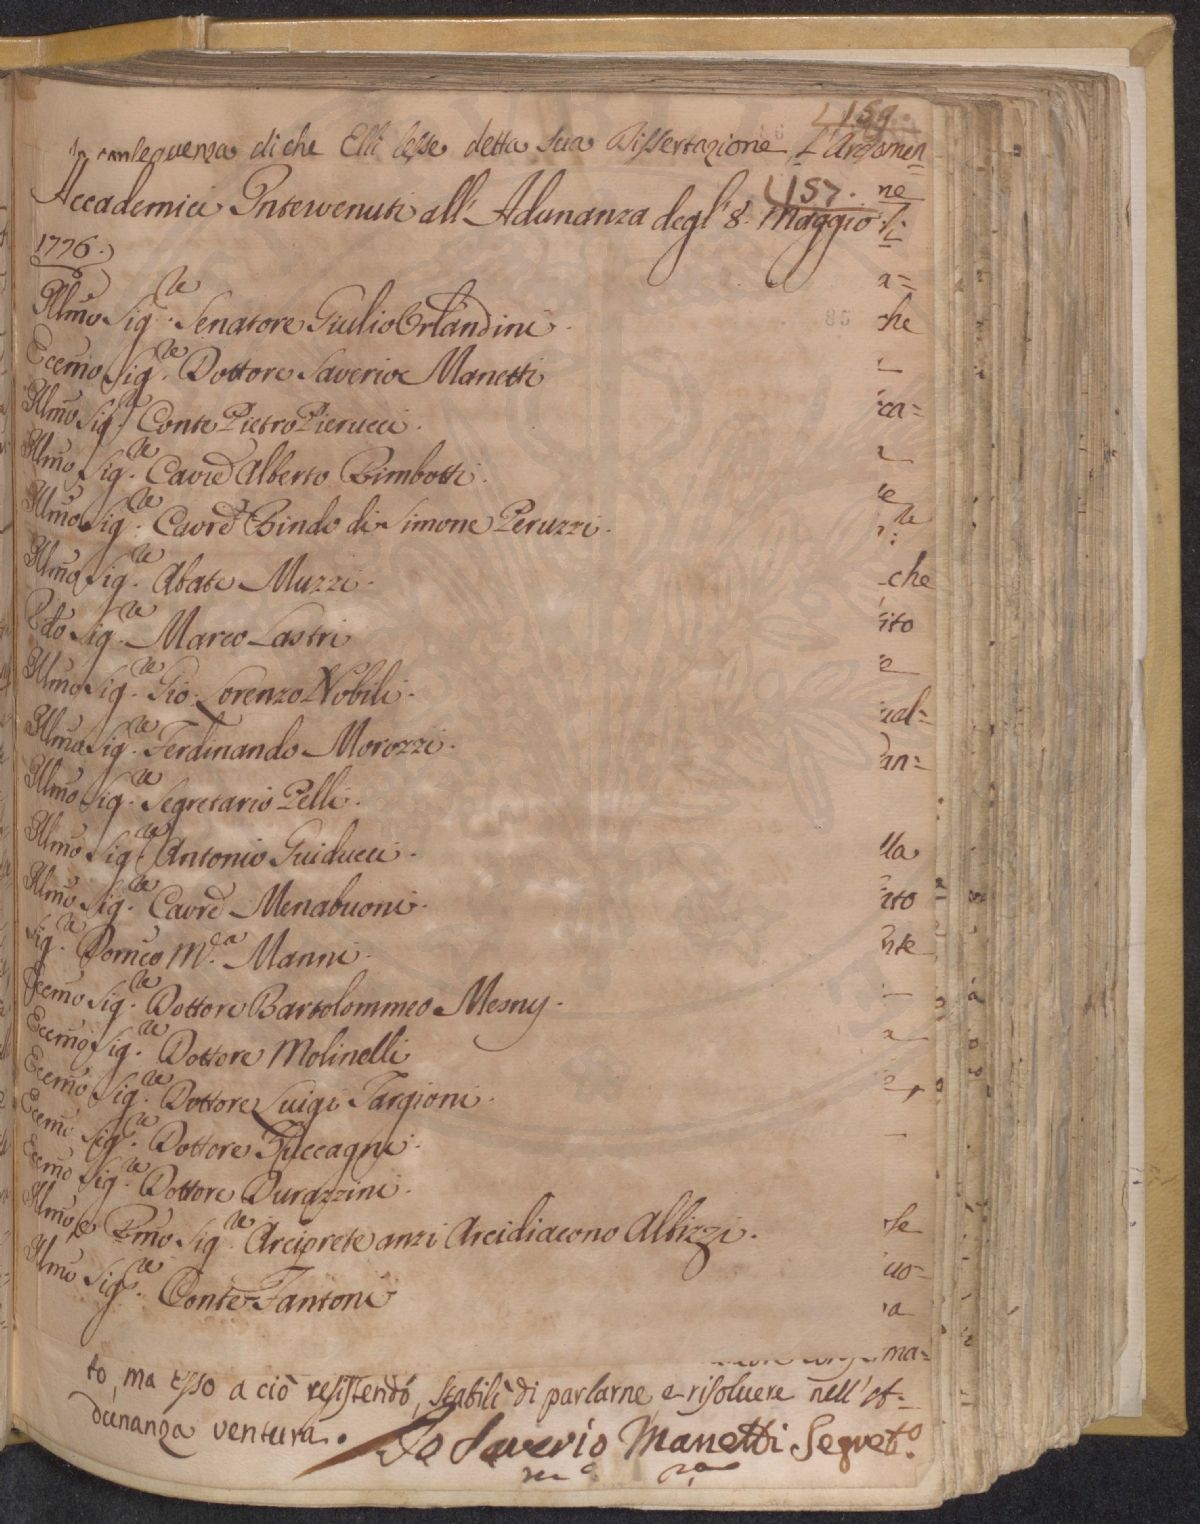 159.
In conseguenza di che Elli lesse detta sua Dissertazione, L'Argomen=
157.
Accademici Intervenuti all'Adunanza degl'8. Maggio
1776.
Illmo Sigre. Senatore Giulio Orlandini.
Eccmo Sigre. Dottore Saverio Manetti
Illmo Sigre. Conte Pietro Pierucci.
Illmo Sigre. Cavre Alberto Rimbotti.
Illmo Sigre. Cavre Bindo di Simone Peruzzi.
Illmo Sigre. Abate Muzzi.
Rdo Sigre. Marco Lastri
Illmo Sigre. Gio. Lorenzo Nobili.
Illmo Sigre. Ferdinando Morozzi.
Illmo Sigre. Segretario Pelli.
Illmo Sigre. Antonio Guiducci.
Illmo Sigre. Cavre Menabuoni.
Sigre. Domco Ma. Manni.
Eccmo Sigre. Dottore Bartolommeo Mesny.
Eccmo Sigre. Dottore Molinelli
Eccmo Sigre. Dottore Luigi Targioni.
Eccmo Sigre. Dottore Zuccagni.
Eccmo Sigre. Dottore Durazzini.
Illmo, e Rmo Sigre. Arciprete anzi Arcidiacono Albizzi.
Illmo Sigre. Conte Fantoni
ne
che
ca=
che
ito
al=
an=
lla
ito
nte
se
uo=
a
ma=
to, ma esso a ciò resistendo, stabilì di parlarne e risolvere nell'A=
dunanza ventura. Io Saverio Manetti Segreto.